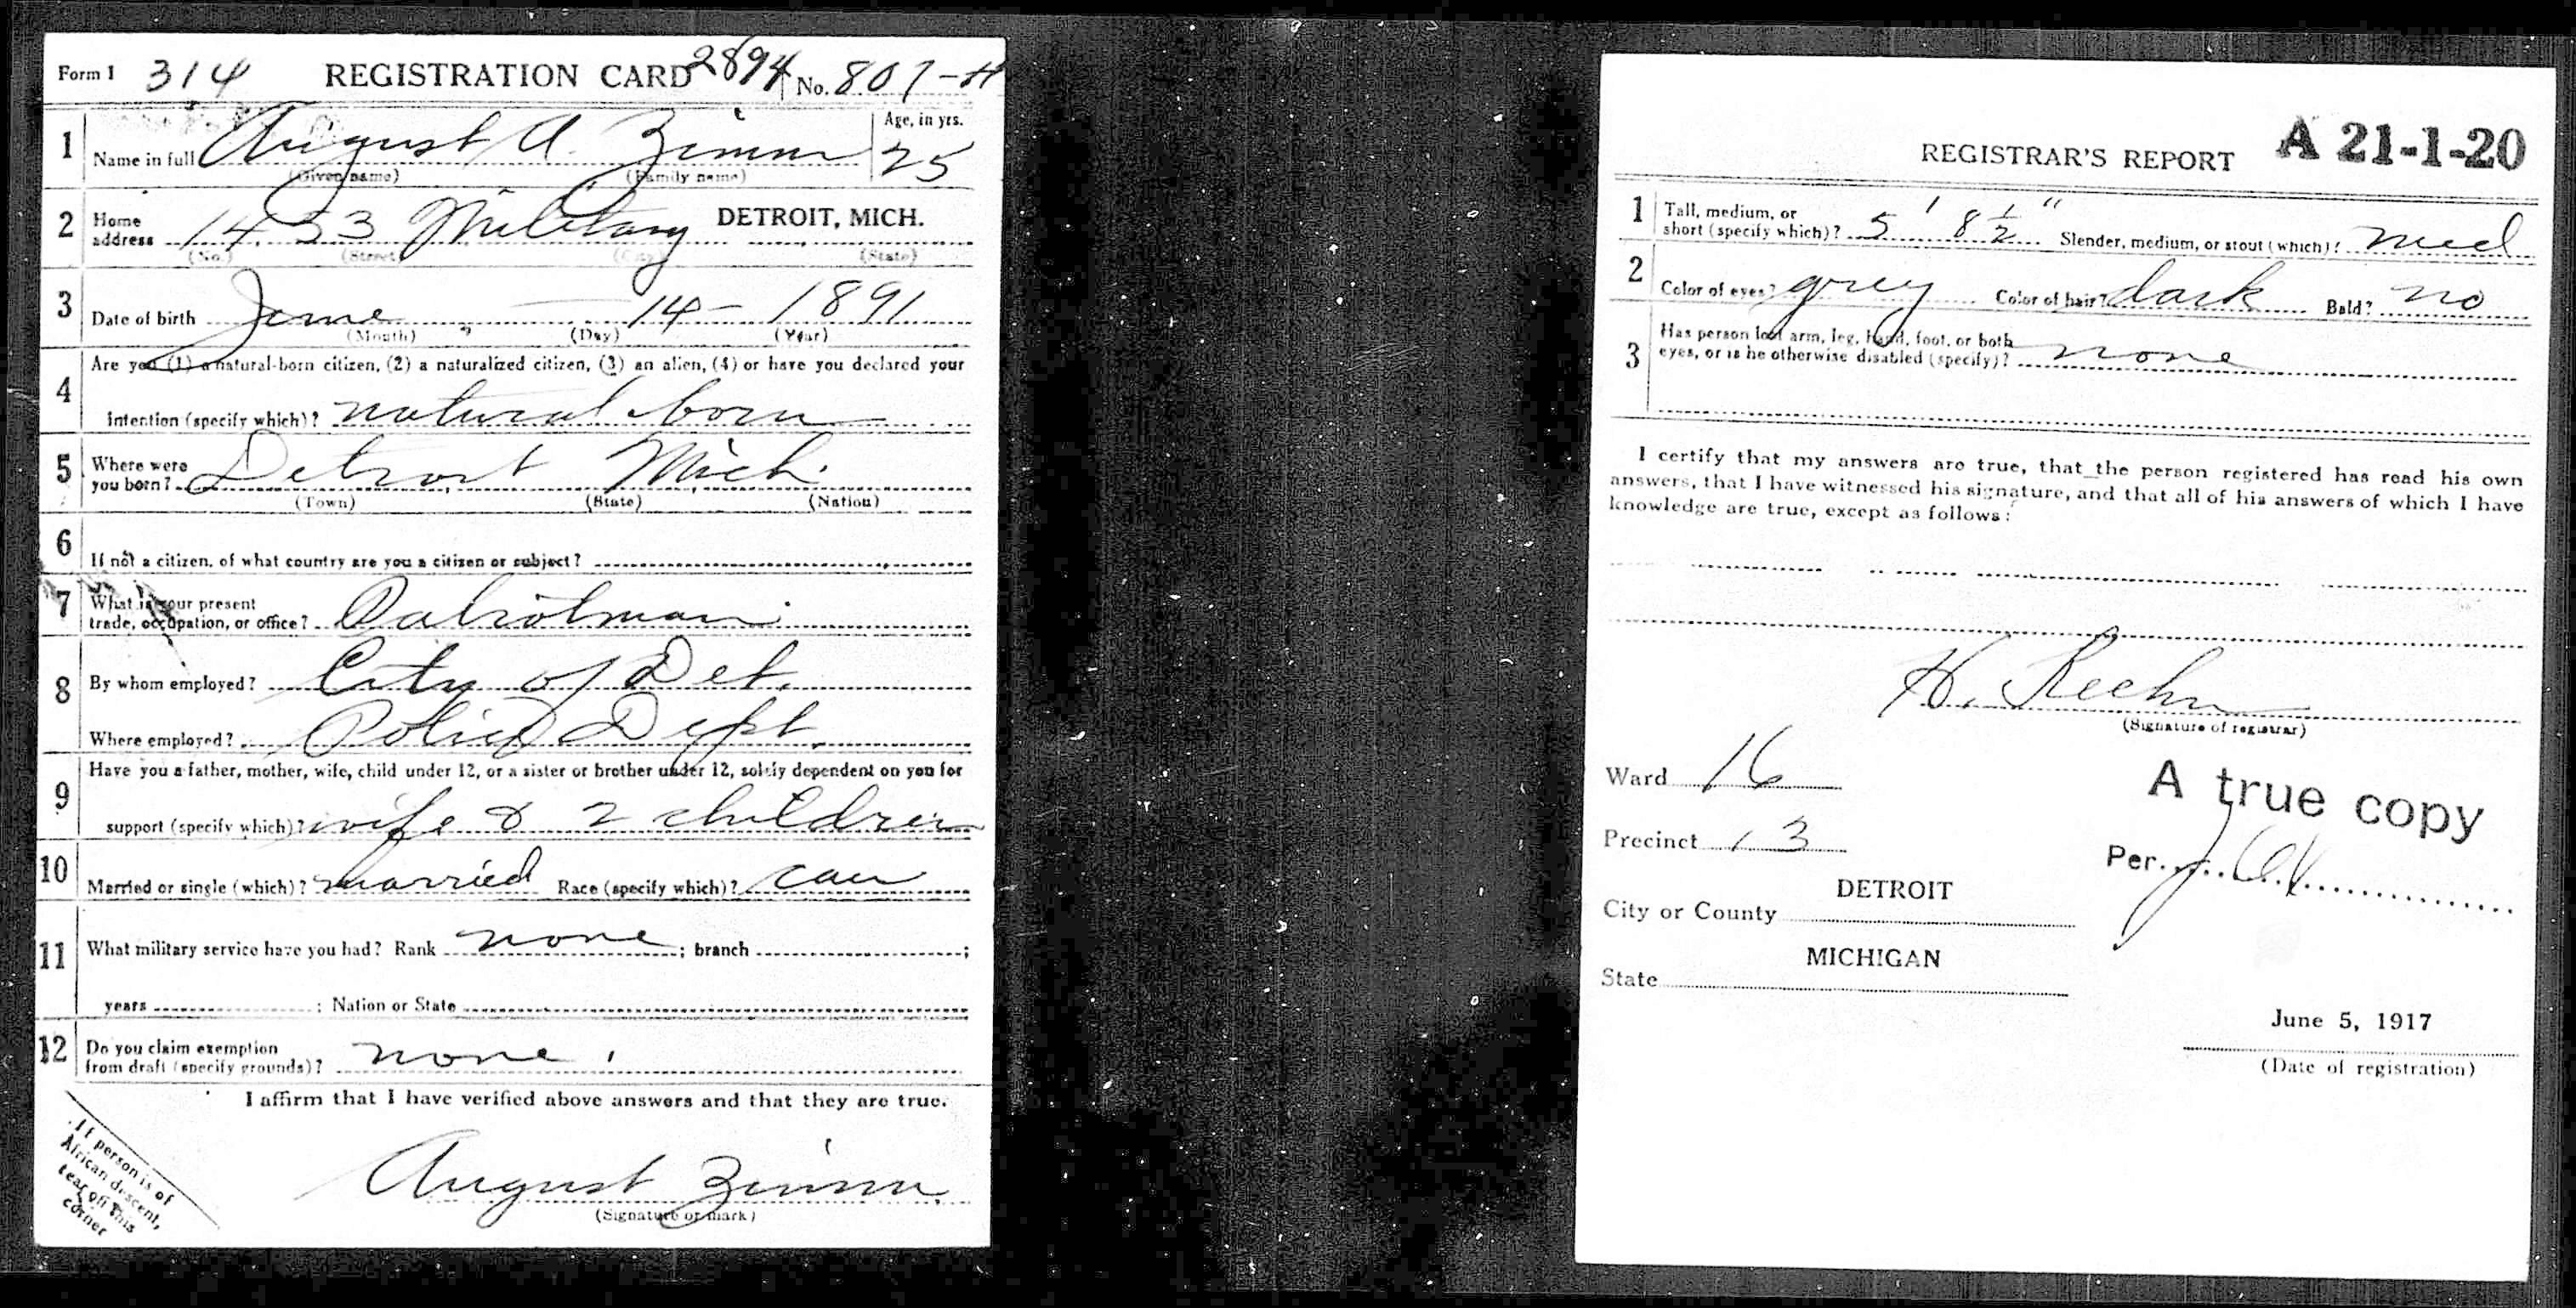 Form 1 314 REGISTRATION CARD 2894 No. 807-H
1 Name in full August A. Zimm Age, in yrs. 25
(Given name) (Family name)
2 Home address 1453 Military DETROIT, MICH.
(No.) (Street) (City) (State)
3 Date of birth June 14 - 1891
(Month) (Day) (Year)
4 Are you (1) a natural-born citizen, (2) a naturalized citizen, (3) an alien, (4) or have you declared your
intention (specify which)? natural born
5 Where were you born? Detroit Mich.
(Town) (State) (Nation)
6 If not a citizen, of what country are you a citizen or subject?
7 What is your present trade, occupation, or office? Patrolman
8 By whom employed? City of Det.
Where employed? Police Dept.
9 Have you a father, mother, wife, child under 12, or a sister or brother under 12, solely dependent on you for
support (specify which)? wife & 2 children
10 Married or single (which)? married Race (specify which)? cau
11 What military service have you had? Rank none ; branch ;
years ; Nation or State
12 Do you claim exemption from draft (specify grounds)? none.
I affirm that I have verified above answers and that they are true.
August Zimm.
(Signature or mark)
If person is of
African descent,
tear off this
corner
REGISTRAR'S REPORT A 21-1-20
1 Tall, medium, or short (specify which)? 5' 8 1/2" Slender, medium, or stout (which)? med
2 Color of eyes? grey Color of hair? dark Bald? no
3 Has person lost arm, leg, hand, foot, or both eyes, or is he otherwise disabled (specify)? none
I certify that my answers are true, that the person registered has read his own
answers, that I have witnessed his signature, and that all of his answers of which I have
knowledge are true, except as follows:
H.
(Signature of registrar)
Ward 16
Precinct 13
A true copy
Per.
City or County DETROIT
State MICHIGAN
June 5, 1917
(Date of registration)